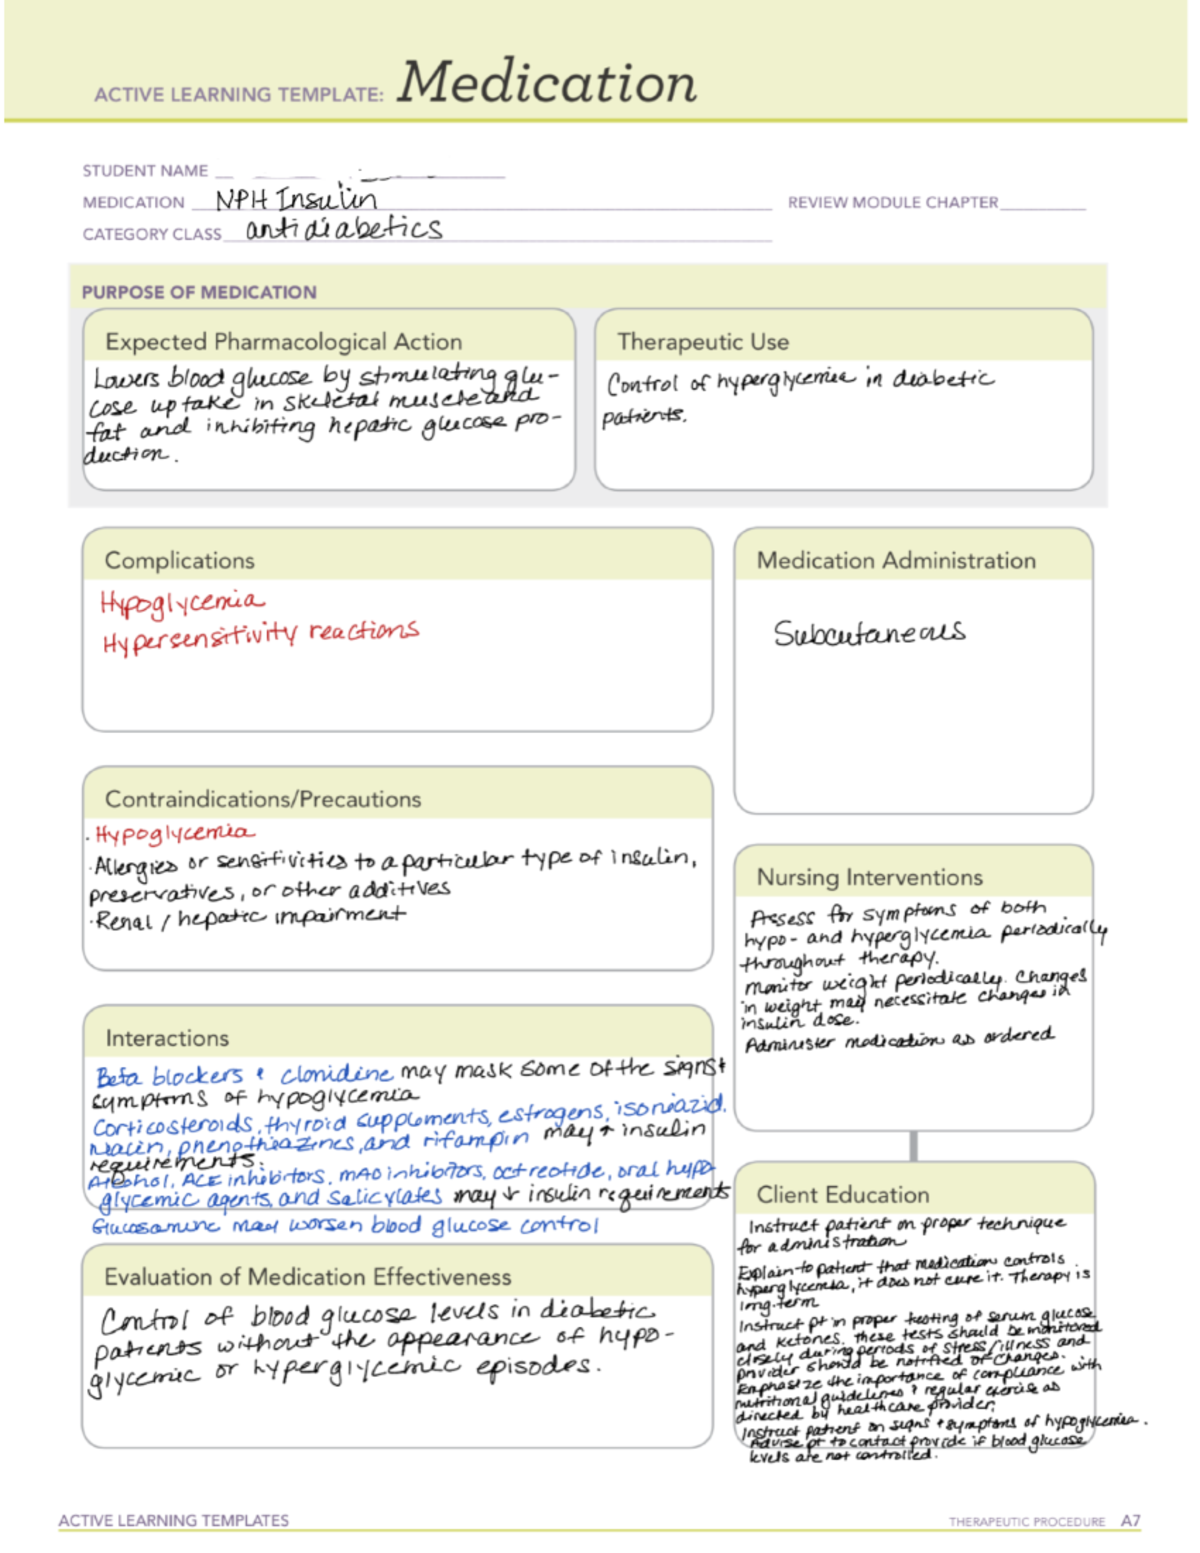 ACTIVE LEARNING TEMPLATE: Medication
STUDENT NAME
MEDICATION NPH Insulin
REVIEW MODULE CHAPTER
CATEGORY CLASS antidiabetics
PURPOSE OF MEDICATION
Expected Pharmacological Action
Lowers blood glucose by stimulating glu-
cose uptake in skeletal muscle and
fat and inhibiting hepatic glucose pro-
duction.
Therapeutic Use
Control of hyperglycemia in diabetic
patients.
Complications
Hypoglycemia
Hypersensitivity reactions
Medication Administration
Subcutaneous
Contraindications/Precautions
· Hypoglycemia
· Allergies or sensitivities to a particular type of insulin,
preservatives, or other additives
· Renal / hepatic impairment
Nursing Interventions
Assess for symptoms of both
hypo- and hyperglycemia periodically
throughout therapy.
Monitor weight periodically. Changes
in weight may necessitate changes in
insulin dose.
Administer medication as ordered
Interactions
Beta blockers & clonidine may mask some of the signs +
symptoms of hypoglycemia
Corticosteroids, thyroid supplements, estrogens, isoniazid,
niacin, phenothiazines, and rifampin may ↑ insulin
requirements.
Alcohol, ACE inhibitors, MAO inhibitors, octreotide, oral hypo-
glycemic agents, and salicylates may ↓ insulin requirements
Glucosamine may worsen blood glucose control
Client Education
Instruct patient on proper technique
for administration
Explain to patient that medication controls
hyperglycemia, it does not cure it. Therapy is
long-term
Instruct pt in proper testing of serum glucose
and ketones. these tests should be monitored
closely during periods of stress/illness and
provider should be notified of changes.
Emphasize the importance of compliance with
nutritional guidelines & regular exercise as
directed by healthcare provider.
Instruct patient on signs + symptoms of hypoglycemia.
Advise pt to contact provide if blood glucose
levels are not controlled.
Evaluation of Medication Effectiveness
Control of blood glucose levels in diabetic
patients without the appearance of hypo-
glycemic or hyperglycemic episodes.
ACTIVE LEARNING TEMPLATES
THERAPEUTIC PROCEDURE A7